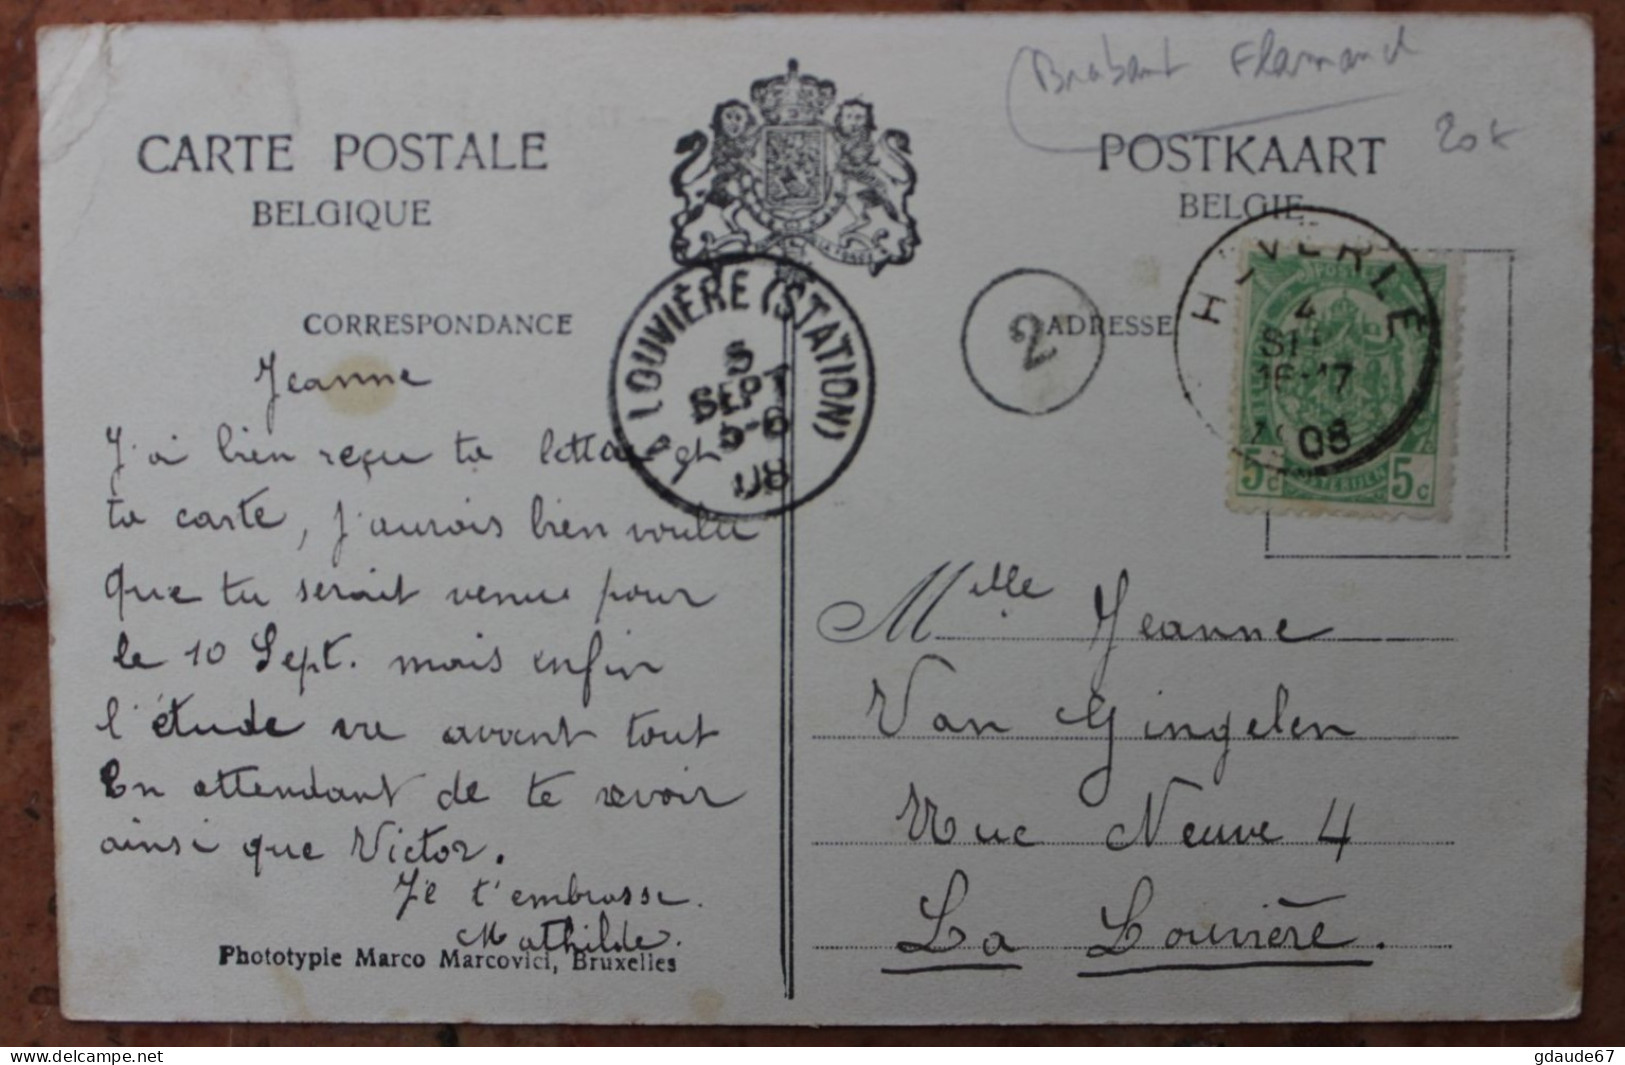 Brabant Flamand
20€
CARTE POSTALE
BELGIQUE
POSTKAART
BELGIE
CORRESPONDANCE
ADRESSE
LA LOUVIÈRE (STATION)
5
SEPT
5-6
08
2
HEVERLE
4
16-17
08
POSTES
5c 5c
Jeanne
J'ai bien reçu ta lettre et
ta carte, j'aurois bien voulu
que tu serait venue pour
le 10 Sept. mais enfin
l'étude va avant tout
En attendant de te revoir
ainsi que Victor.
Je t'embrasse.
Mathilde.
Phototypie Marco Marcovici, Bruxelles
Melle Jeanne
Van Gingelen
Rue Neuve 4
La Louvière.
gdaude67